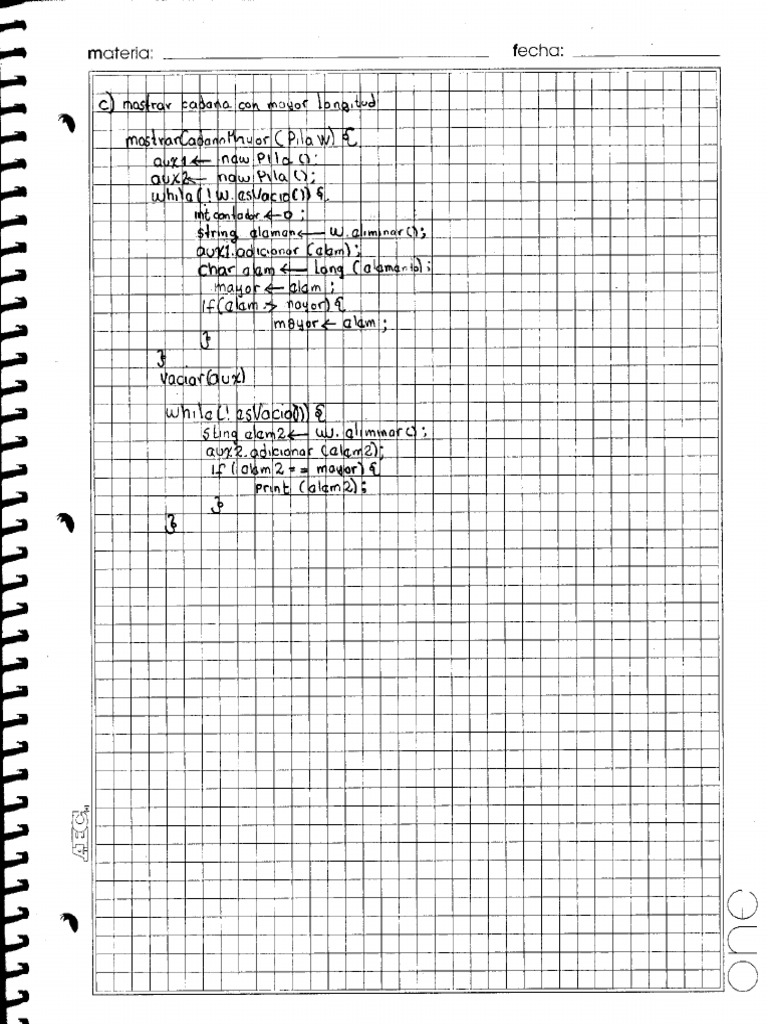 materia:
fecha:
c) mostrar cadena con mayor longitud
mostrarCadenaMayor (Pila W) {
aux1 ← new Pila ();
aux2 ← new Pila ();
while(! W. esVacio()) {
int contador ← 0 ;
string elemen ← W. eliminar();
aux1.adicionar (elem);
char elem ← long (elemento);
mayor ← elem ;
if (elem > mayor) {
mayor ← elem ;
}
}
Vaciar(aux)
while(! esVacio()) {
sting elem2 ← W. eliminar();
aux2.adicionar (elem2);
if (elem2 == mayor) {
print (elem2);
}
}
AEC
one